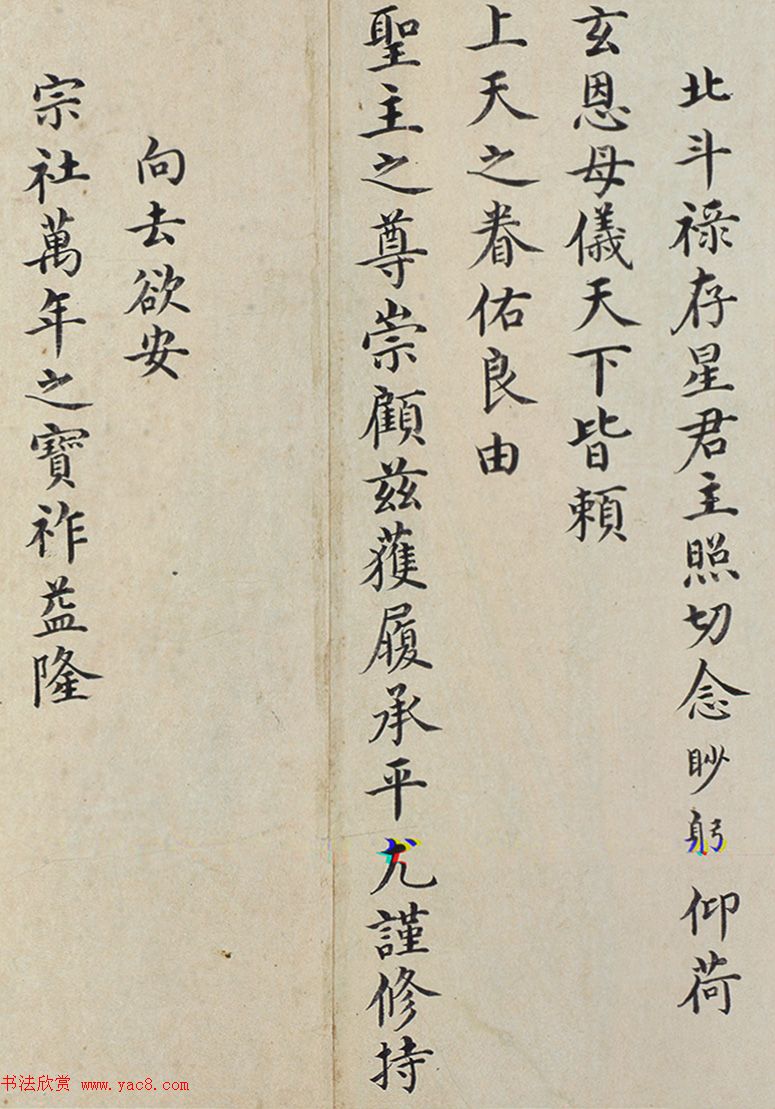 北斗祿存星君主照切念眇躬仰荷
玄恩母儀天下皆賴
上天之眷佑良由
聖主之尊崇顧茲獲履承平尤謹修持
向去欲安
宗社萬年之寶祚益隆
书法欣赏 www.yac8.com